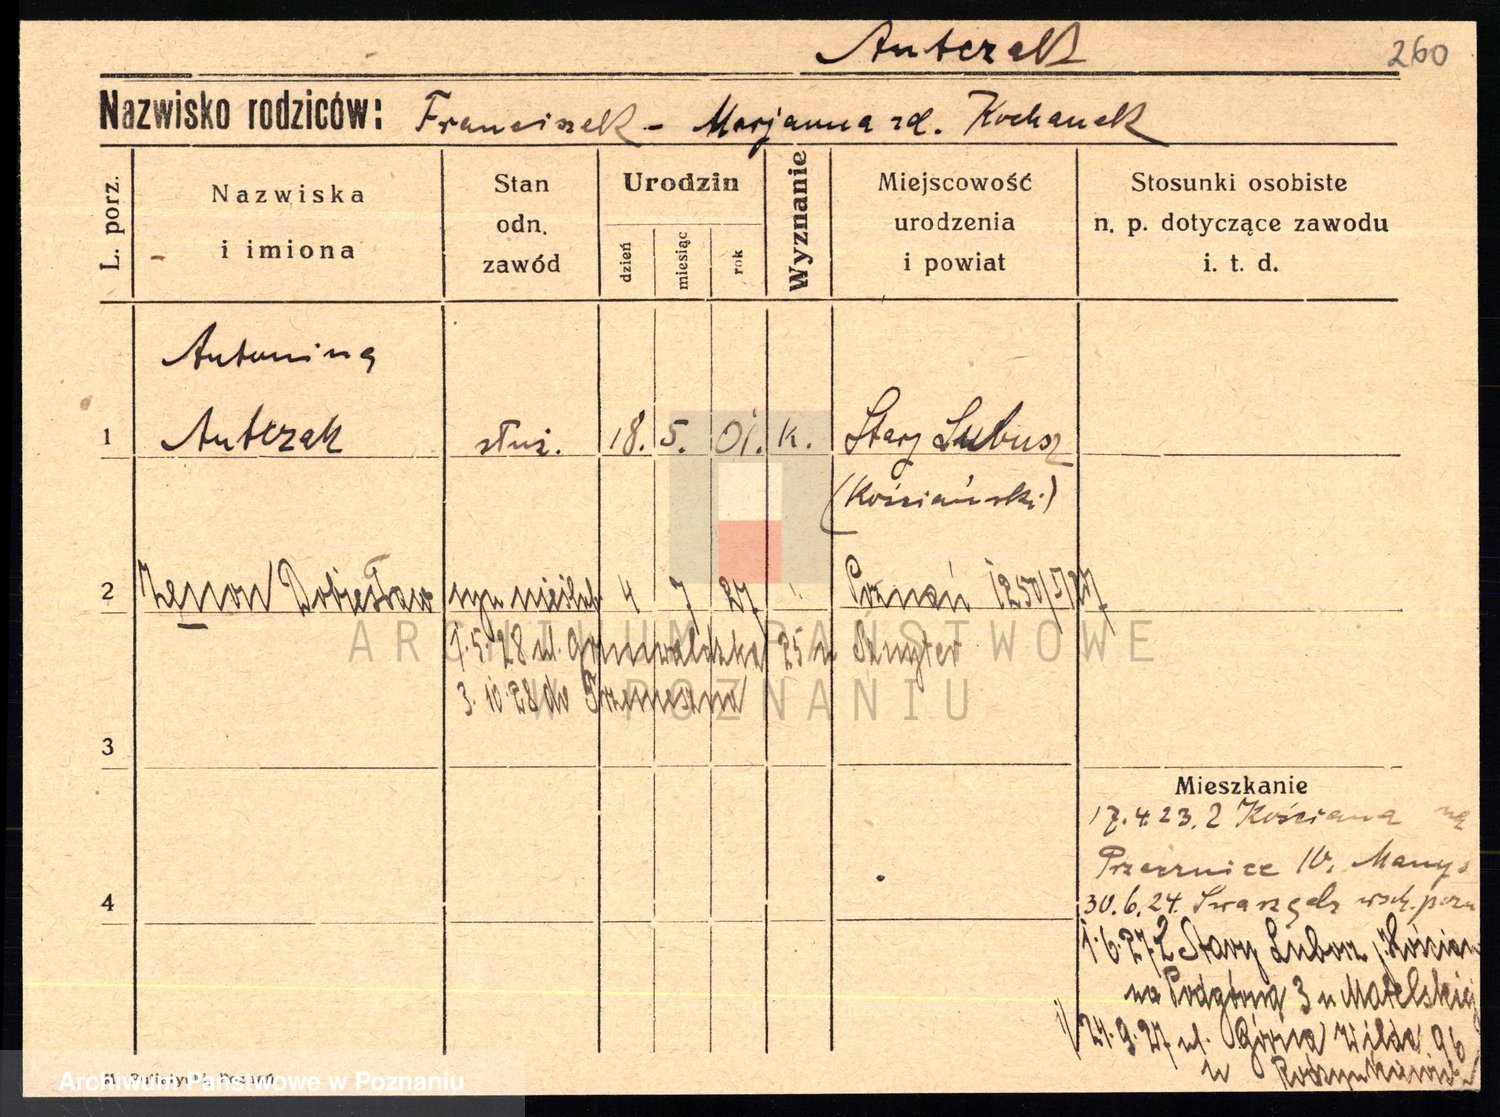 Antczak 260
Nazwisko rodziców: Franciszek - Marjanna zd. Kochanek
L. porz. Nazwiska i imiona Stan odn. zawód Urodzin dzień miesiąc rok Wyznanie Miejscowość urodzenia i powiat Stosunki osobiste n. p. dotyczące zawodu i. t. d.
Antonina
1 Antczak służ. 18. 5. 01. k. Stary Lubusz
(Kościański)
2 Zenon Dobiesław syn nieślub 4 7 27 " Poznań 1250/5/27
1.5.28 ul. Grunwaldzka 25 u Sznyter
3. 10.28 do Trzemeszna
3
Mieszkanie
17.4.23. z Kościana na
Przecznice 10, Manys
4 30.6.24. Swarzędz wsch. pozn
1.6.27 z Stary Lubosz p. Kościan
na Podgórną 3 u Matelskiej
24.9.27 ul. Górna Wilda 96
u
ARCHIWUM PAŃSTWOWE
W POZNANIU
Archiwum Państwowe w Poznaniu